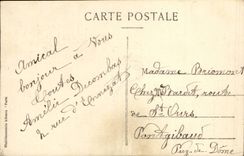 CARTE POSTALE
Amical
bonjour à Vous
Toutes
Amélie Decombas
rue d'
Madame Briomont
Chez, route
de St Ours
Par Pontgibaud
Puy-de-Dôme